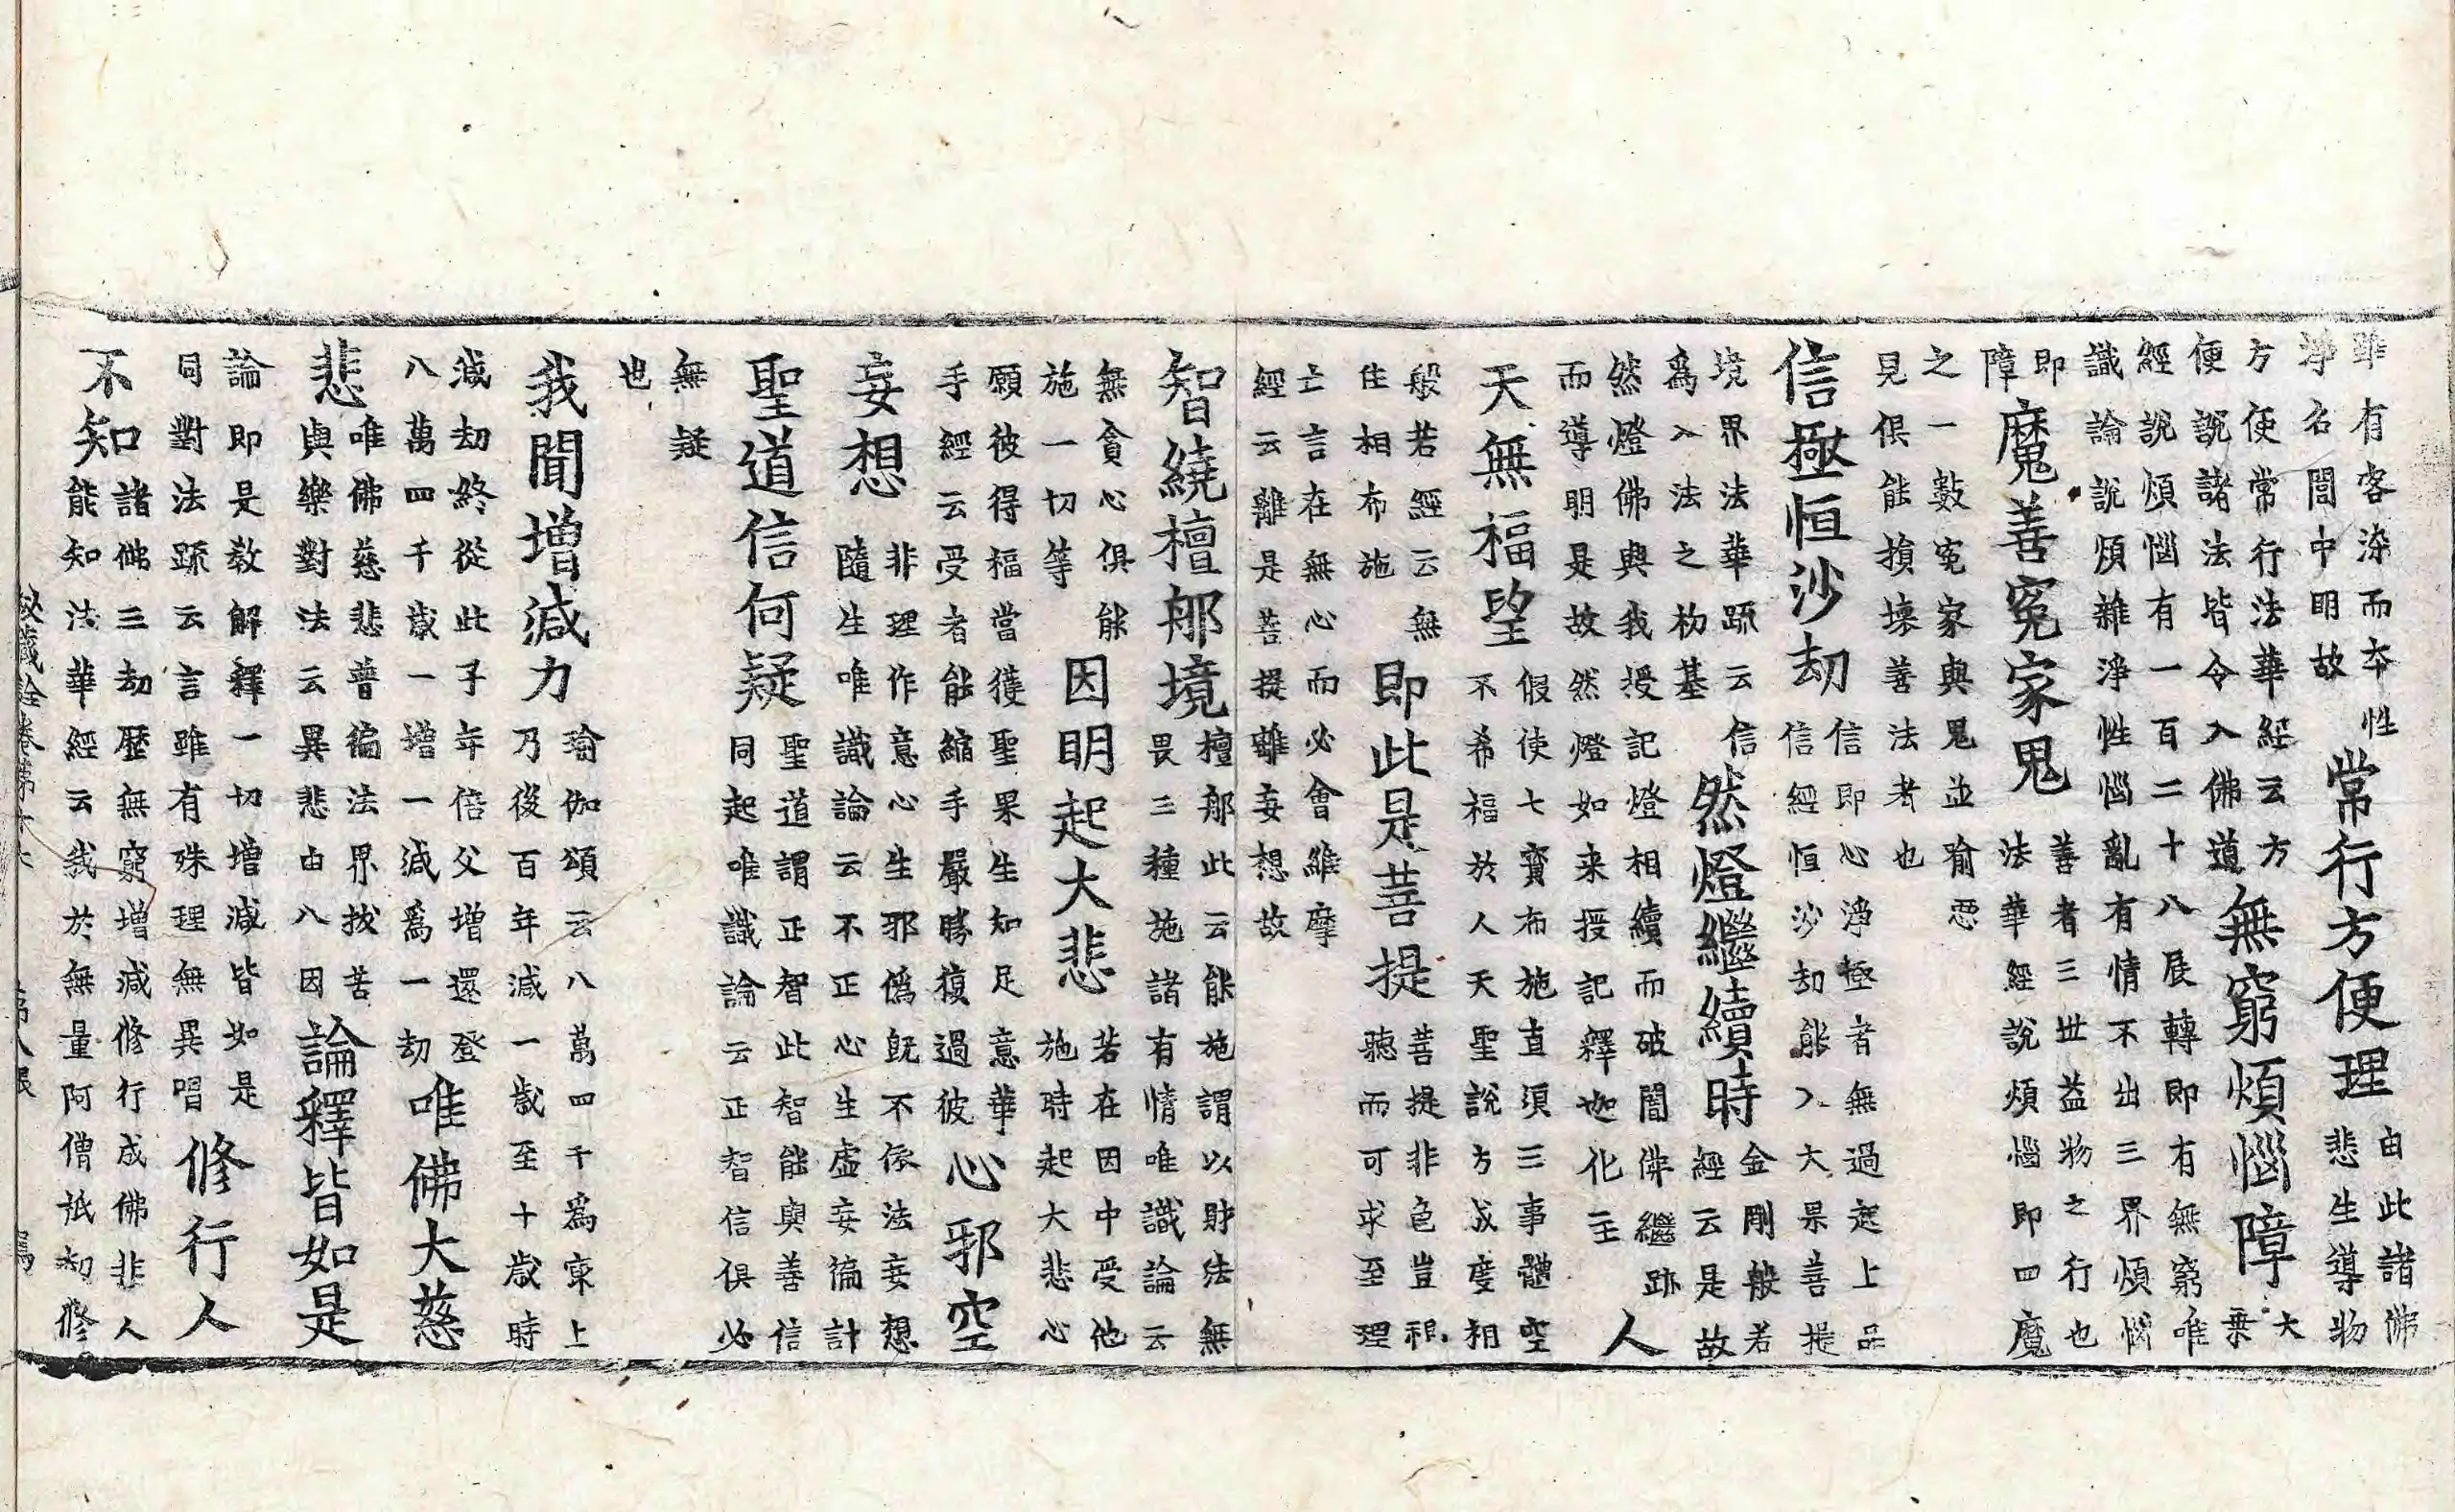 雖有客染而本性
淨名闇中明故
常行方便理
由此諸佛
悲生導物
方便常行法華經云方
便說諸法皆令入佛道
無窮煩惱障
大
乗
經說煩惱有一百二十八展轉即有無窮唯
識論說煩雜淨性惱亂有情不出三界煩惱
即
障
魔善寃家鬼
善者三世益物之行也
法華經說煩惱即四魔
之一數寃家與鬼並喻惡
見俱能損壞善法者也
信極恒沙劫
信即心淨極者無過起上品
信經恒沙劫能入大果菩提
境界法華䟽云信
爲入法之初基
然燈繼續時
金剛般若
經云是故
然燈佛與我授記燈相續而破闇佛繼跡
而導明是故然燈如来授記釋迦化主
人
天無福望
假使七寳布施直須三事體空
不希福於人天聖說方成度相
般若經云無
住相布施
即此是菩提
菩提非色豈視
聽而可求至理
亡言在無心而必會維摩
經云離是菩提離妄想故
智繞檀那境
檀那此云能施謂以財法無
畏三種施諸有情唯識論云
無貪心俱能
施一切等
因明起大悲
若在因中受他
施時起大悲心
願彼得福當獲聖果生知足意華
手經云受者能縮手嚴勝復過彼
心邪空
妄想
非理作意心生邪僞旣不依法妄想
隨生唯識論云不正心生虛妄徧計
聖道信何疑
聖道謂正智此智能與善信
同起唯識論云正智信俱必
無疑
也
我聞增減力
瑜伽頌云八萬四千爲東上
乃後百年減一歲至十歲時
減劫終從此子年倍父增還登
八萬四千歲一增一減爲一劫
唯佛大慈
悲
唯佛慈悲普徧法界拔苦
與樂對法云異悲由八因
論釋皆如是
論即是教解釋一切增減皆如是
同對法䟽云言雖有殊理無異唱
修行人
不知
諸佛三劫歷無窮增減修行成佛非人
能知法華經云我於無量阿僧祇劫修